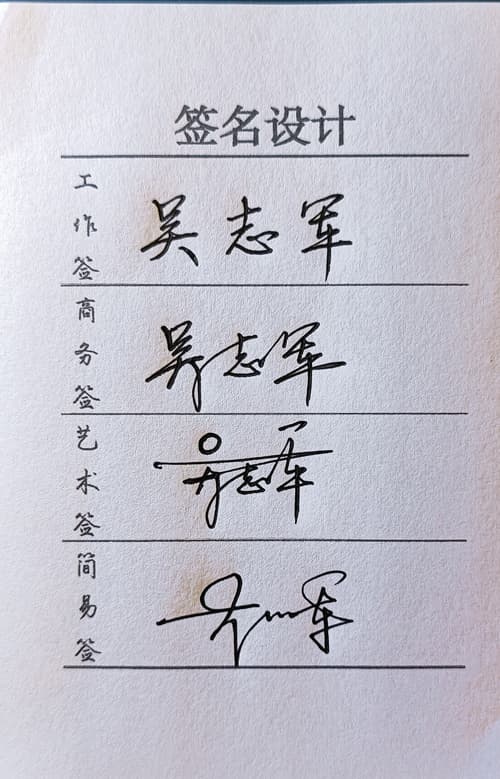 签名设计
工作签
吴志军
商务签
吴志军
艺术签
吴志军
简易签
吴志军